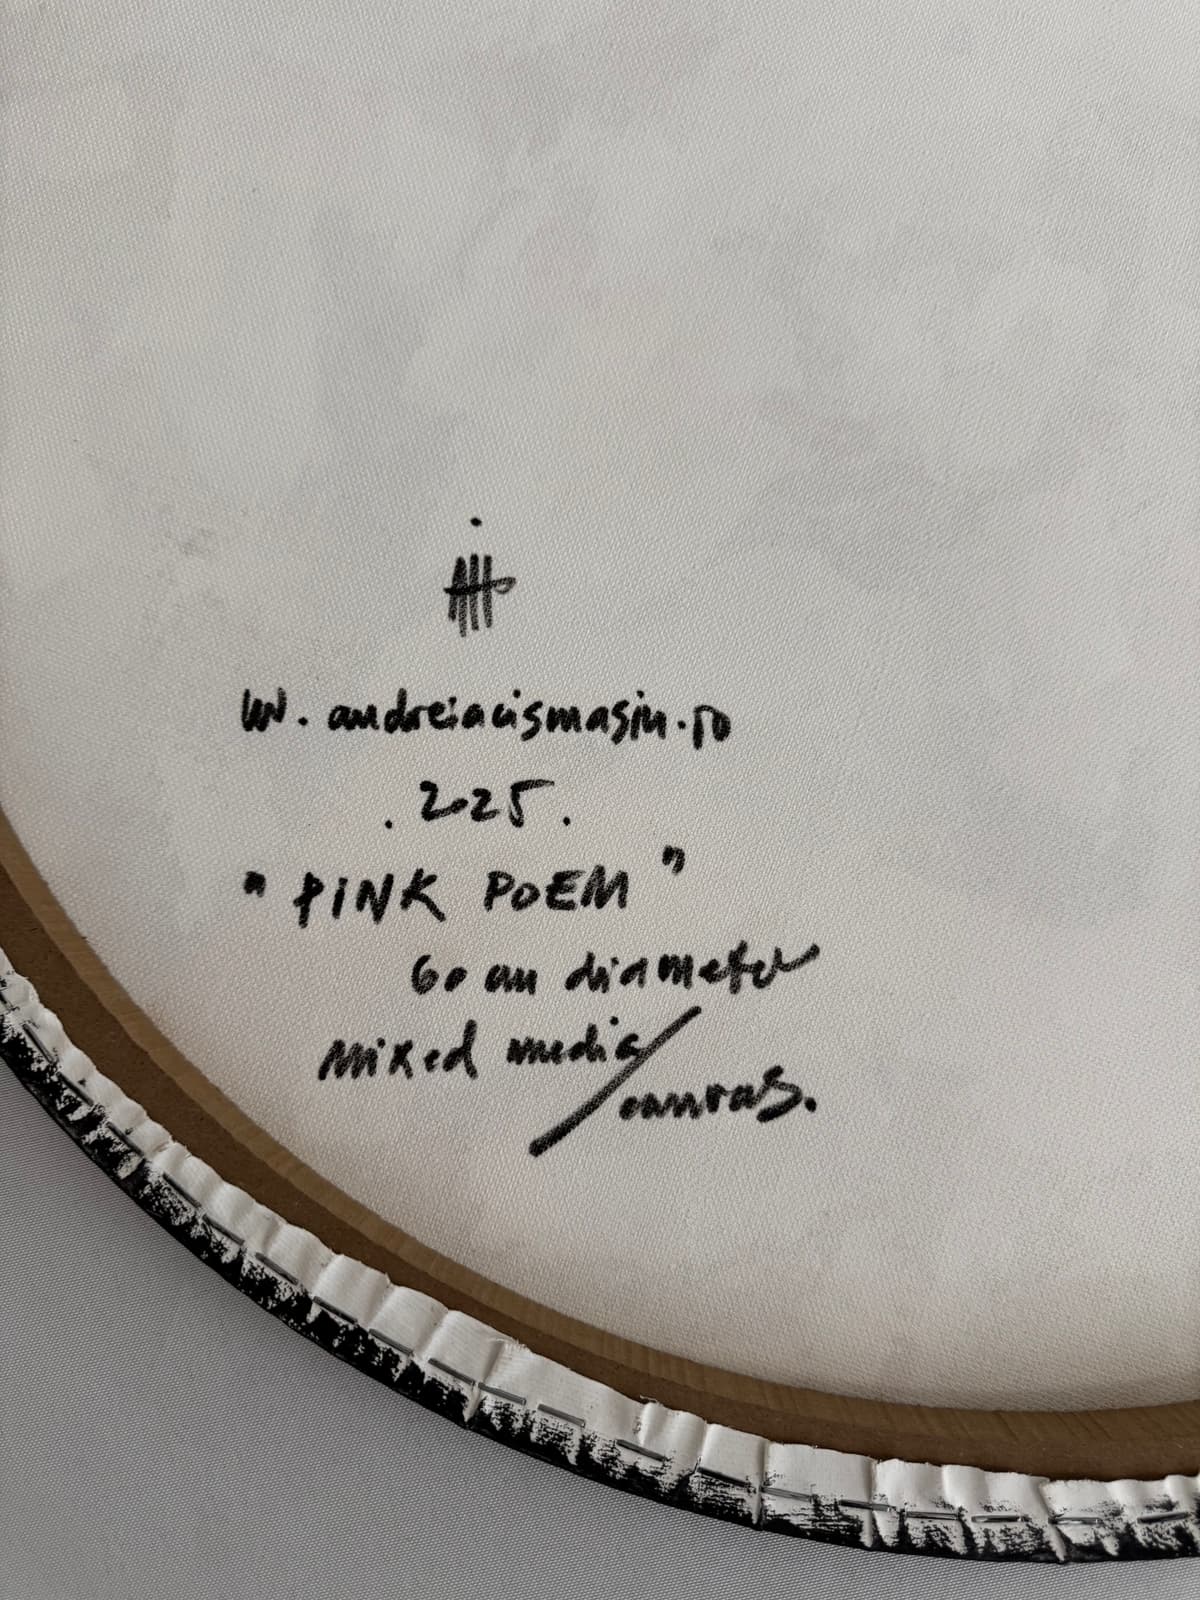 w. andreiacismasiu.ro
. 2025.
"PiNK POEM"
60 cm diameter
mixed media/
canvas.